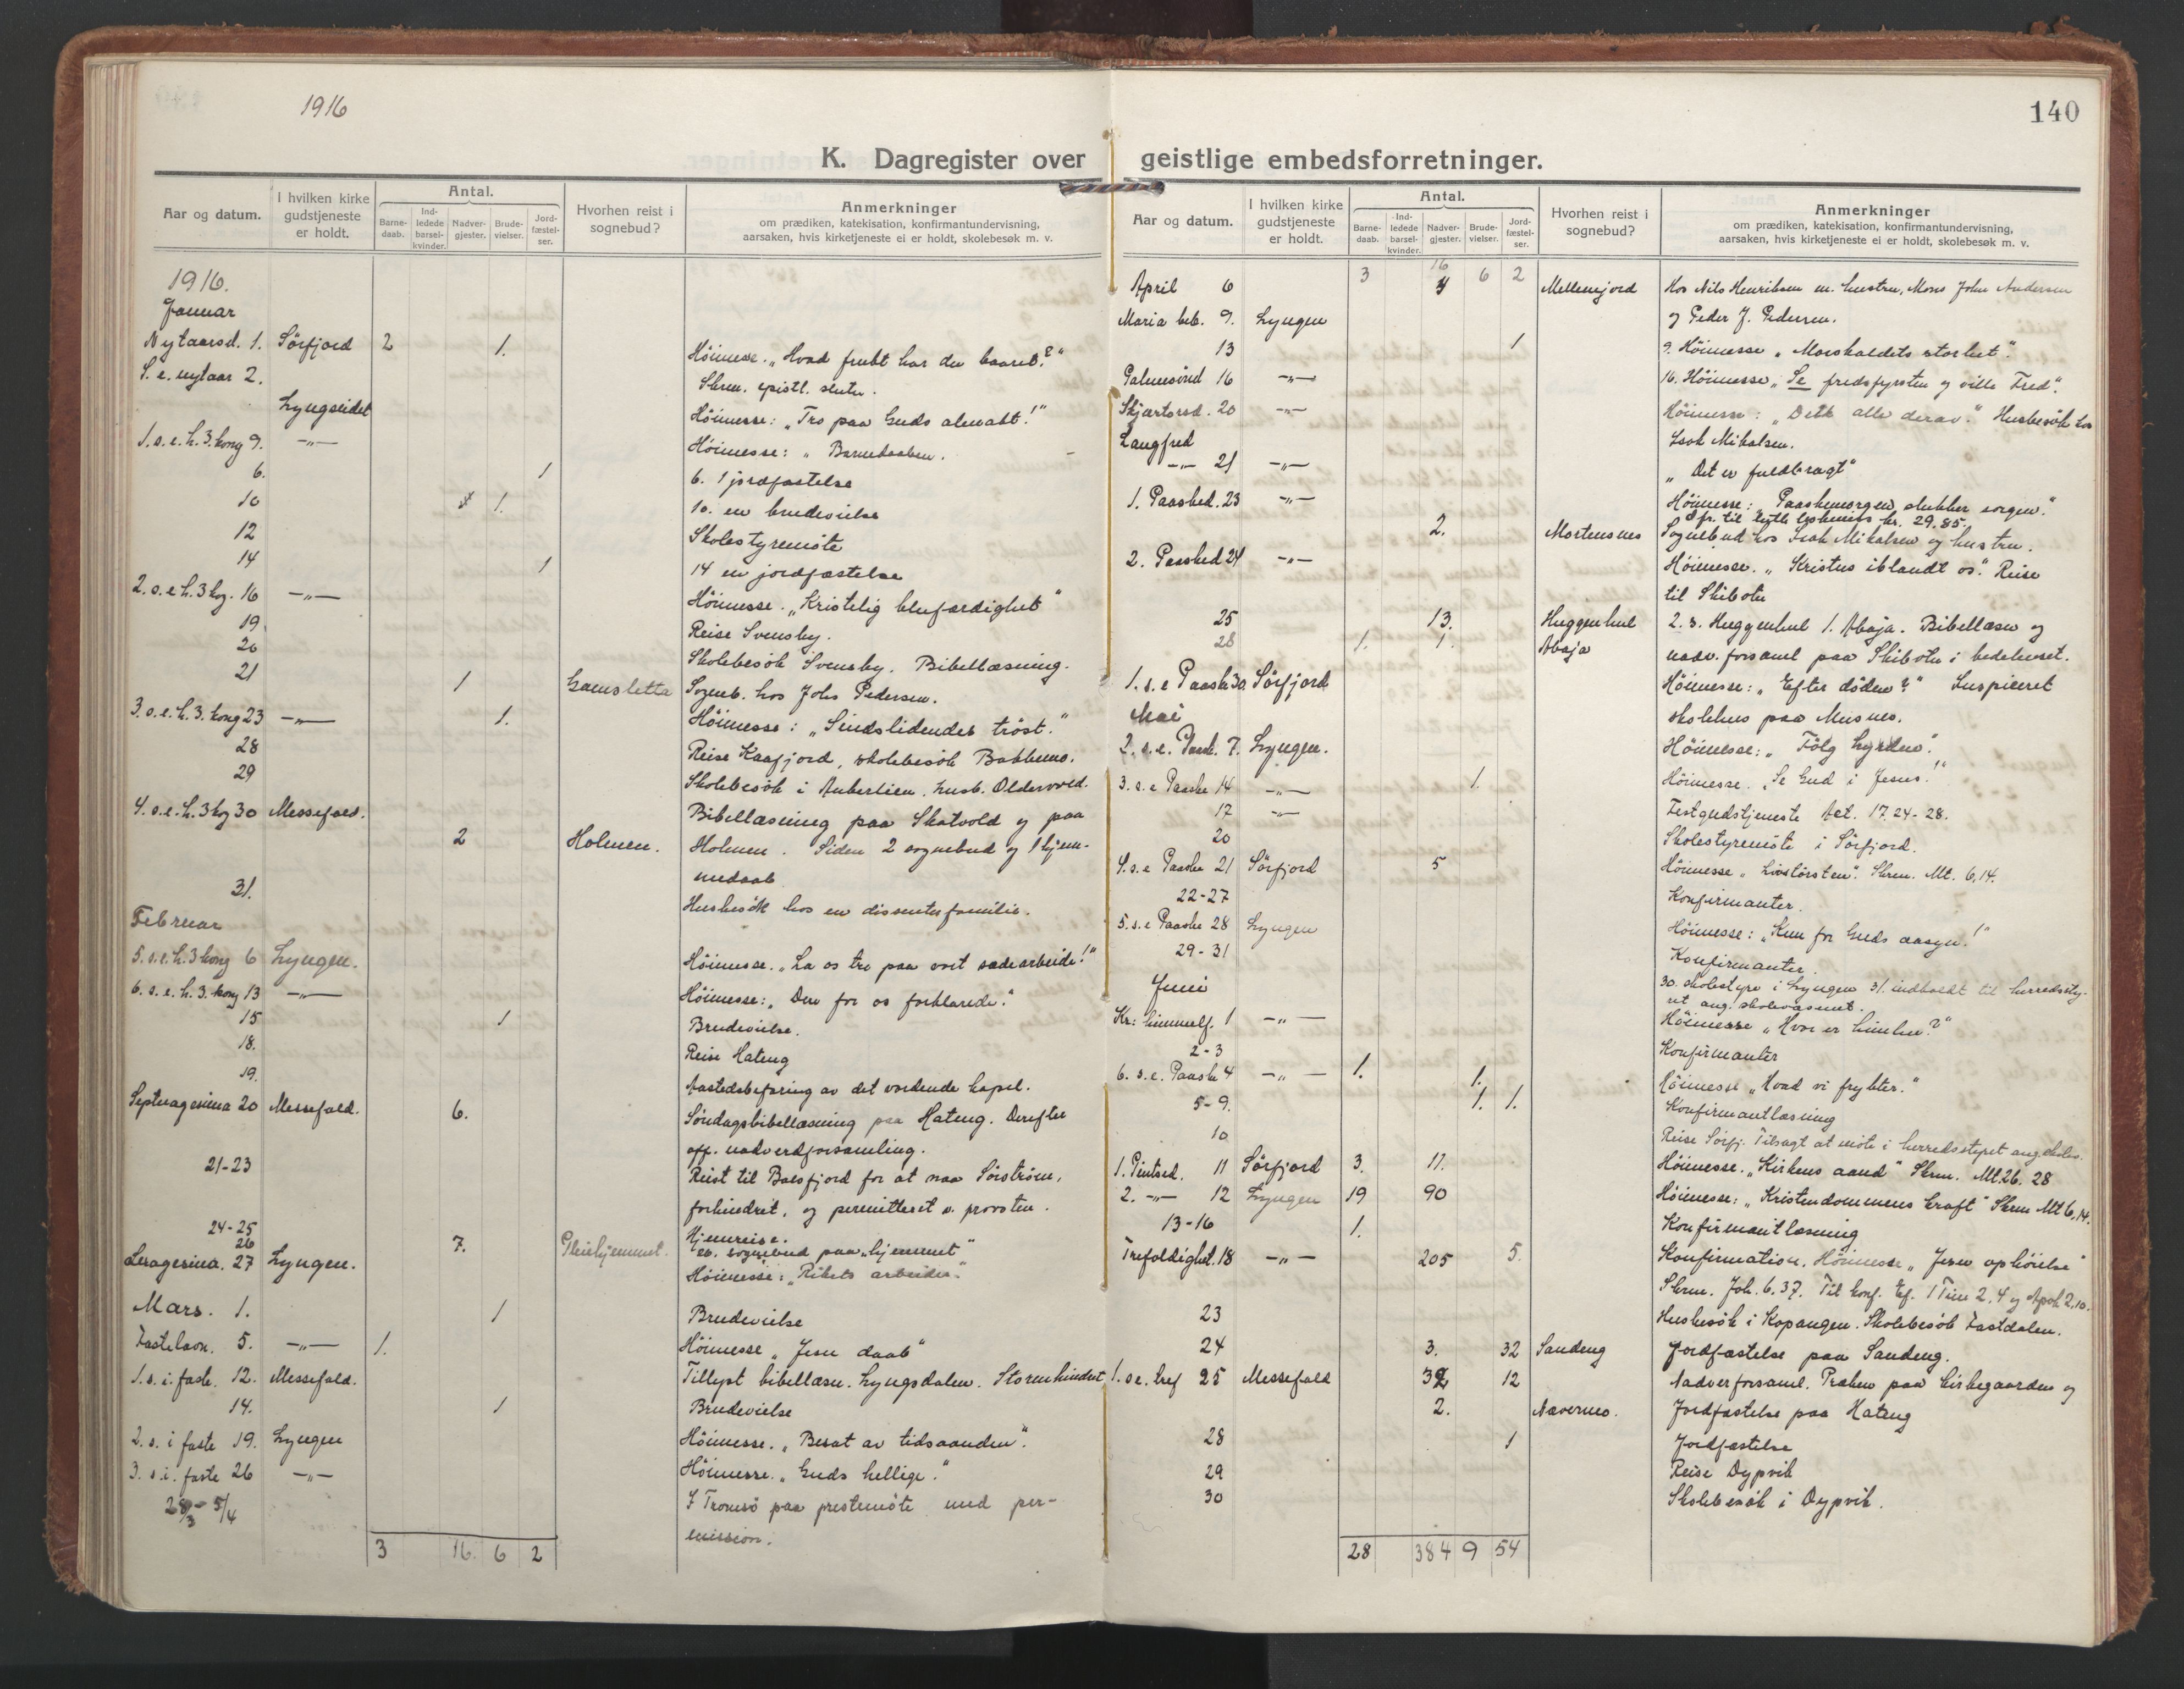 1916
140
K. Dagregister over geistlige embedsforretninger.
Aar og datum.
I hvilken kirke gudstjeneste er holdt.
Antal.
Barne- daab.
Ind- ledede barsel- kvinder.
Nadver- gjester.
Brude- vielser.
Jord- fæstel- ser.
Hvorhen reist i sognebud?
Anmerkninger
om prædiken, katekisation, konfirmantundervisning,
aarsaken, hvis kirketjeneste ei er holdt, skolebesøk m. v.
1916.
Januar
Nytaarsd. 1. Sörfjord 2 1. Höimesse. „Hvad frukt har du baaret?“
S. e. nytaar 2. Skrm. epistl. slutn.
Lyngseidet Höimesse: „Tro paa Guds almakt!“
1. s. e. h. 3. kong 9. -"- Höimesse: „Barnedaaben.
6. 1 6. 1 jordfæstelse
10 1. 10. en brudevielse
12 Skolestyremöte
14 1 14 en jordfæstelse
2. s. e h. 3 kg. 16 -"- Höimesse. „Kristelig blufærdighet“
19 Reise Svensby.
20 Skolebesök Svensby. Bibellæsning.
21 1 Gamsletta Sogneb. hos Johs Pedersen.
3. s. e. h. 3. kong 23 -"- 1. Höimesse: „Sindslidendes tröst.“
28 Reise Kaafjord, skolebesök Bakkemo.
29 Skolebesök i Ankerlien. husb. Oldervold.
4. s. e. h. 3 kg 30 Messefald. Bibellæsning paa Skatvold og paa
2 Holmen. Holmen. Siden 2 sognebud og 1 hjem-
medaab
31. Husbesök hos en dissenterfamilie.
Februar
5. s. e. h. 3 kong 6 Lyngen. Höimesse. „La os tro paa vort sædearbeide!“
6. s. e. h. 3. kong 13 -"- Höimesse: „Den for os forklarede.“
15 1 Brudevielse.
18. Reise Hateng
19. Aastedsbefaring av det vordende kapel.
Septuagesima 20 Messefald. 6. Söndagsbibellæsning paa Hateng. Derefter
off. nadverdforsamling.
21-23 Reist til Balsfjord for at naa Sörström,
forhindret, og permitteret v. provsten.
24-25 Hjemreise.
26 7. Pleiehjemmet. 26. sognebud paa „hjemmet“
Sexagesima. 27 Lyngen. Höimesse: „Rikets arbeider.“
Mars. 1. 1 Brudevielse
Fastelavn. 5. -"- 1. Höimesse „Jesu daab“
1. s. i. faste. 12. Messefald. Tillyst bibellæsn. Lyngsdalen. Stormhindret
14. 1 Brudevielse
2. s. i faste 19. Lyngen Höimesse. „Besat av tidsaanden“.
3. s. i. faste 26 -"- Höimesse. „Guds hellige.“
28/3 - 5/4 I Tromsö paa prestemöte med per-
mission.
3 16. 6 2
3 16 6 2
April 6 4 Mellemjord Hos Nils Henriksen m. hustru, Mons John Andersen
Maria beb. 9. Lyngen og Peder J. Pedersen.
13 1 9. Höimesse „Morskaldets storhet“.
Palmesönd 16 -"- 16. Höimesse „Se fredsfyrsten og ville Fred“.
Skjærtorsd. 20 -"- Höimesse: „Drik alle derav.“ Husbesök hos
Langfred Isak Mikalsen.
-"- 21 -"- „Det er fuldbragt“
1. Paasked. 23 -"- Höimesse: „Paaskemorgen slukker sorgen“.
Ofr. til kr. 29.85.
2. Mortensnes Sognebud hos Isak Mikalsen og hustru.
2. Paasked 24 -"- Höimesse. „Kristus iblandt os.“ Reise
til Skibotn
25 13. Huggenhul 2. s. Huggenhul 1. Abaja. Bibellæsn og
28 1. 1. Abaja nadv. forsaml paa Skibotn i bedehuset.
1. s. e Paaske 30. Sörfjord Höimesse: „Efter döden?“ Inspiceret
Mai skolehus paa Musnes.
2. s. e. Paask. 7. Lyngen. Höimesse: „Fölg hyrden“.
3. s. e Paaske 14 -"- 1. Höimesse. „Se Gud i Jesus!“
17 -"- Festgudstjeneste Act. 17.24-28.
20 Skolestyremöte i Sörfjord.
4. s. e Paaske 21 Sörfjord 5 Höimesse „Livstörsten“. Skrm. Mt. 6,14.
22-27 Konfirmanter.
5. s. e Paaske 28 Lyngen Höimesse: „Kun for Guds aasyn!“
29-31 Konfirmanter.
30. skolestyre i Lyngen 31. indkaldt til herredssty-
ret ang. skolevæsenet.
Juni
Kr: himmelf. 1 -"- Höimesse „Hvor er himlen?“
2-3 Konfirmanter
6. s. e. Paaske 4 -"- 1. 1. Höimesse „Hvad vi frykter.“
5-9. 1. 1. Konfirmantlæsning
10 Reise Sörfj. Tilsagt at möte i herredsstyret ang skoles.
1. Pintsed. 11 Sörfjord 3. 11. Höimesse. „Kirkens aand“ Skrm. Mt. 26. 28
2. -"- 12 Lyngen 19 90 Höimesse: „Kristendommens kraft“ Skrm Mt 6,14.
13-16 1. Konfirmantlæsning
Trefoldighet. 18 -"- 205 5. Konfirmation. Höimesse „Jesu ophöielse“
Skrm. Joh. 6.37. Til konf. Ef. 1 Tim 2,4 og Apok 2,10.
23 Husbesök i Kopangen. Skolebesök Fastdalen.
24 3. 32 Sandeng Jordfæstelse paa Sandeng.
1. s e. tref 25 Messefald 32 12 Nadverforsaml. Præken paa kirkegaarden og
2. Navermo. Jordfæstelse paa Hateng
28 1 Jordfæstelse
29 Reise Dypvik
30 Skolebesök i Dypvik.
28 384 9 54